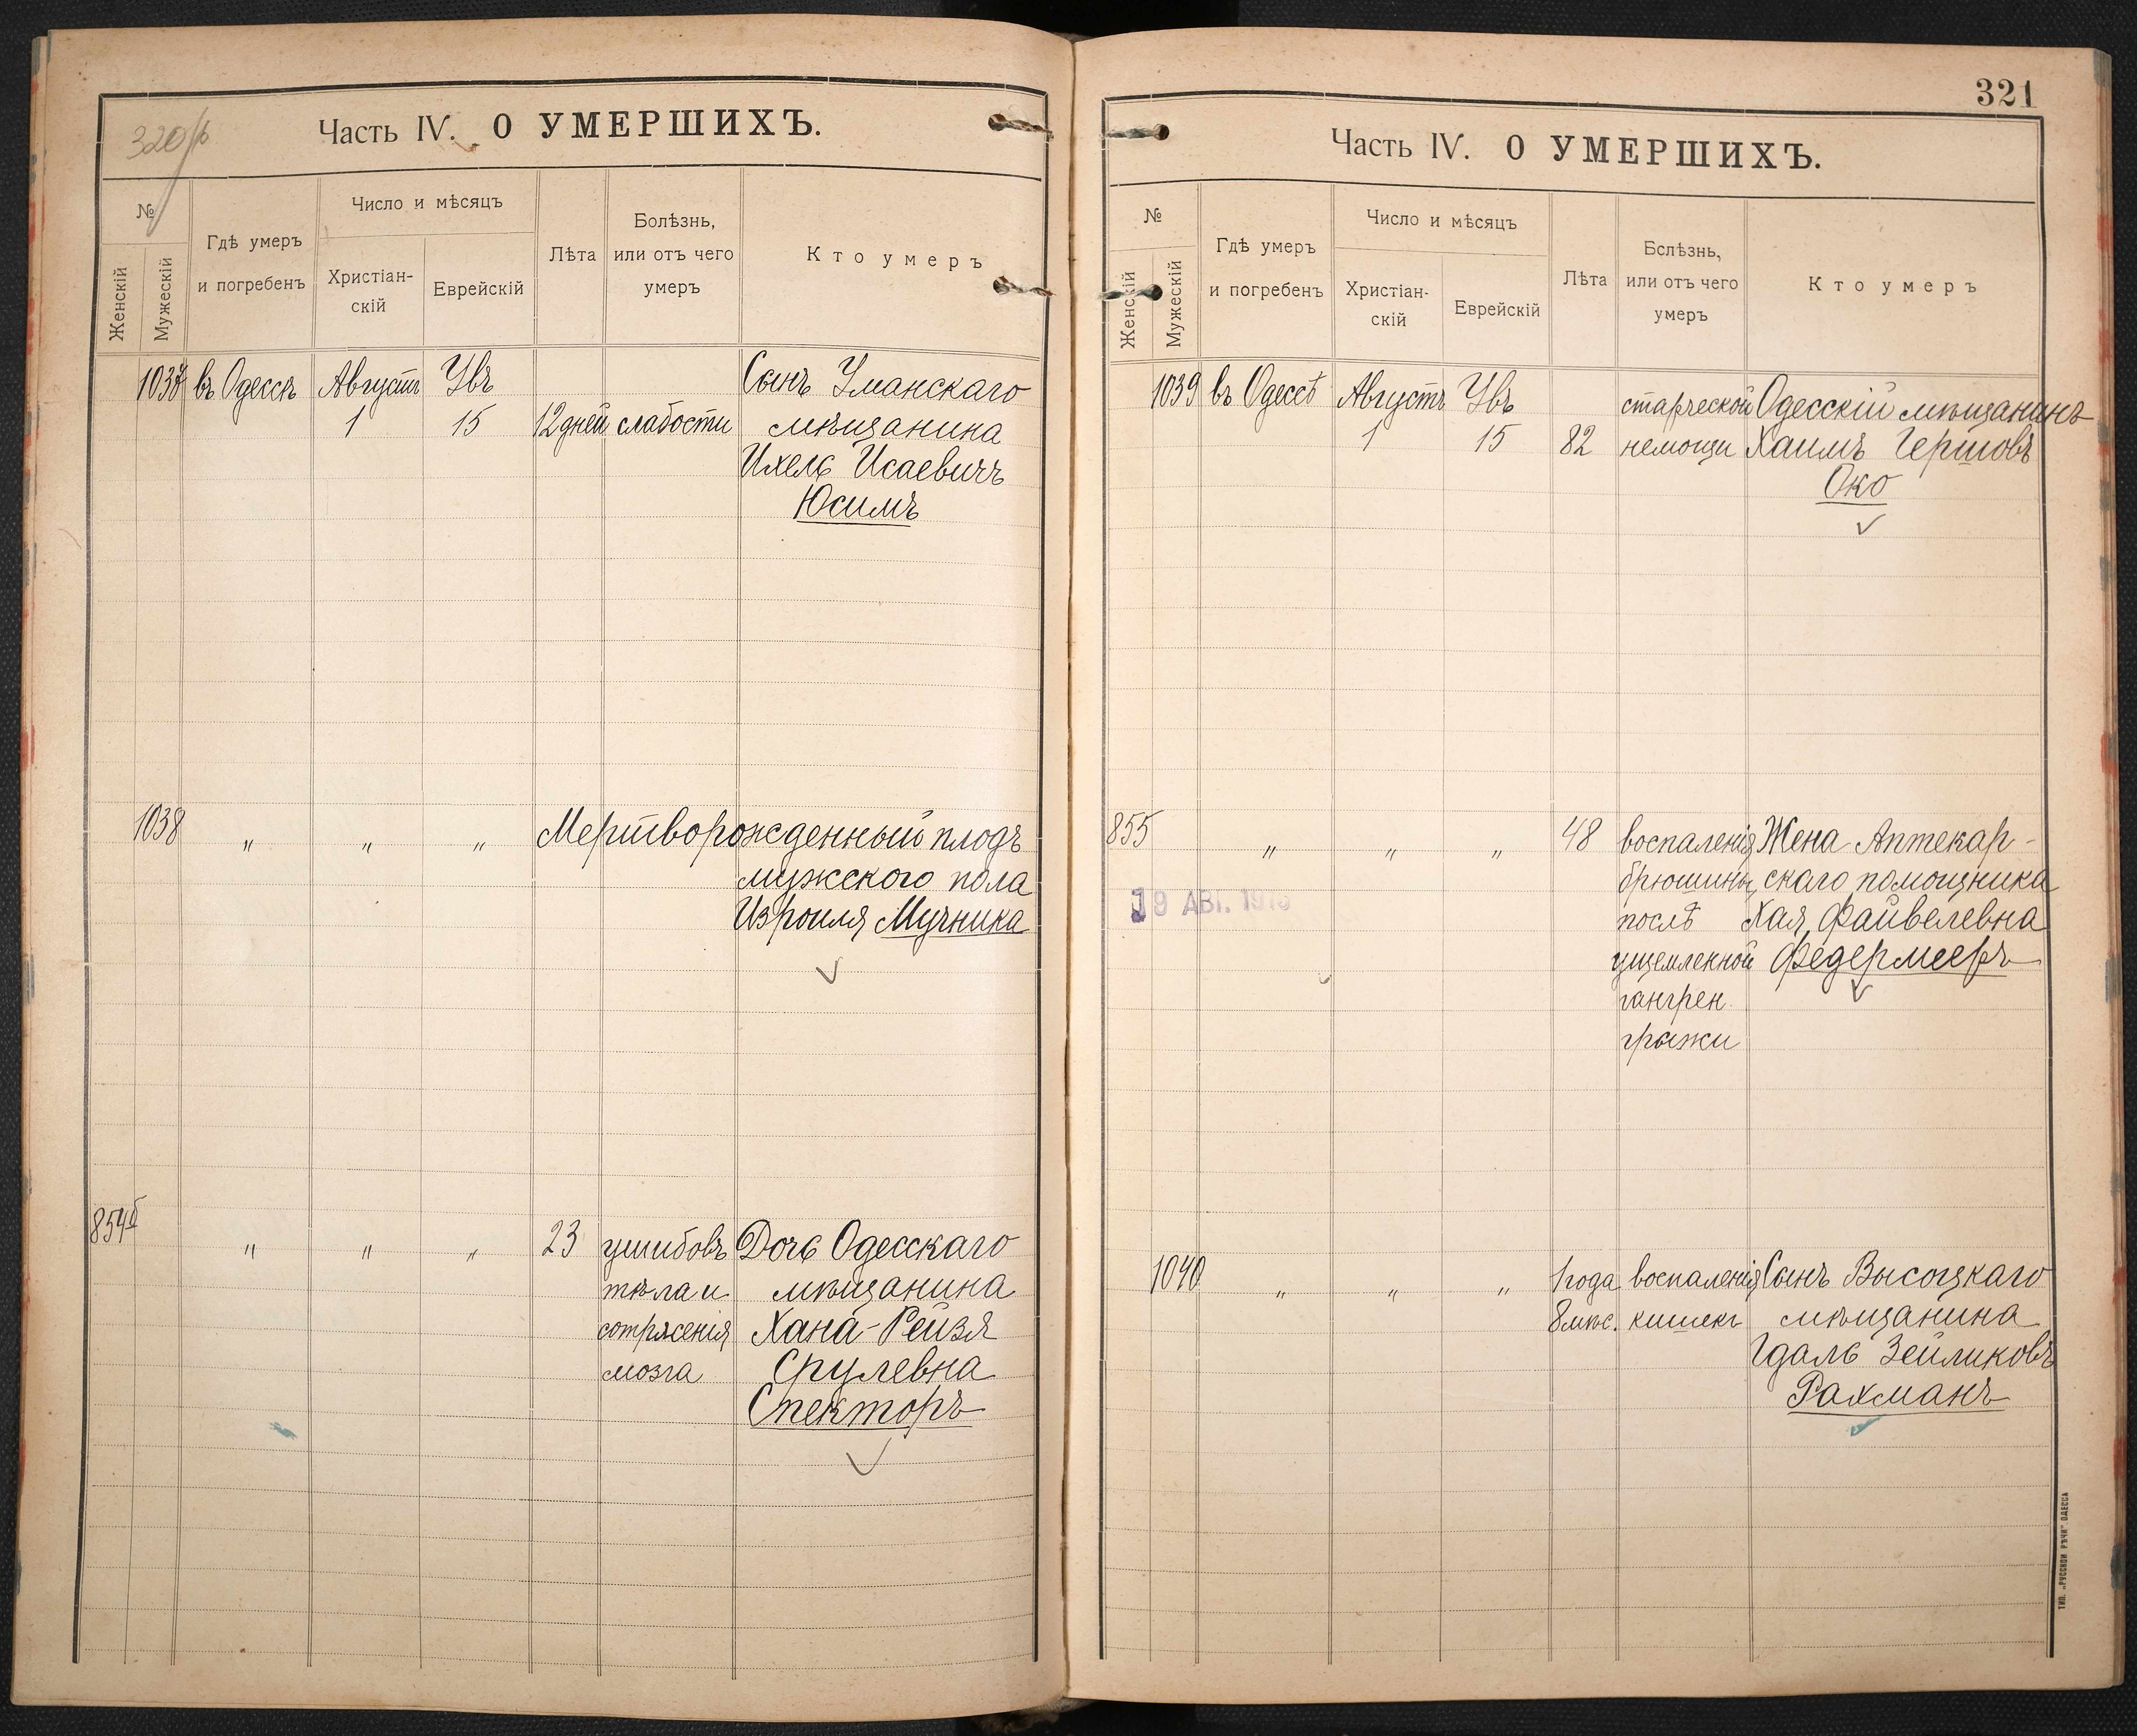 320
Часть IV. О УМЕРШИХЪ.
№
Женскій
Мужескій
Гдѣ умеръ
и погребенъ
Число и мѣсяцъ
Христіан-
скій
Еврейскій
Лѣта
Болѣзнь,
или отъ чего
умеръ
Кто умеръ
1037 въ Одессѣ Августъ Увъ Сынъ Уманскаго
1 15 12 дней слабости мѣщанина
Ихель Исаевичъ
Юсимъ
1038 " " " Мертворожденный плодъ
мужского пола
Изроиля Мучника
854 " " " 23 ушибовъ Дочь Одесскаго
тѣла и мѣщанина
сотрясенія Хана-Рейзя
мозга Срулевна
Спекторъ
321
Часть IV. О УМЕРШИХЪ.
№
Женскій
Мужескій
Гдѣ умеръ
и погребенъ
Число и мѣсяцъ
Христіан-
скій
Еврейскій
Лѣта
Бслѣзнь,
или отъ чего
умеръ
Кто умеръ
1039 въ Одессѣ Августъ Увъ старческой Одесскій мѣщанинъ
1 15 82 немощи Хаимъ Гершовъ
Око
855 " " " 48 воспаленія Жена Аптекар-
брюшины скаго помощника
послѣ Хая Файвелевна
ущемленной Федермееръ
гангрен.
грыжи
19 АВГ. 1913
1040 " " " 1 года воспаленія Сынъ Высоцкаго
8 мѣс. кишекъ мѣщанина
Гдаль Зейликовъ
Рахманъ
ТИП. „РУССКОЙ РѢЧИ" ОДЕССА